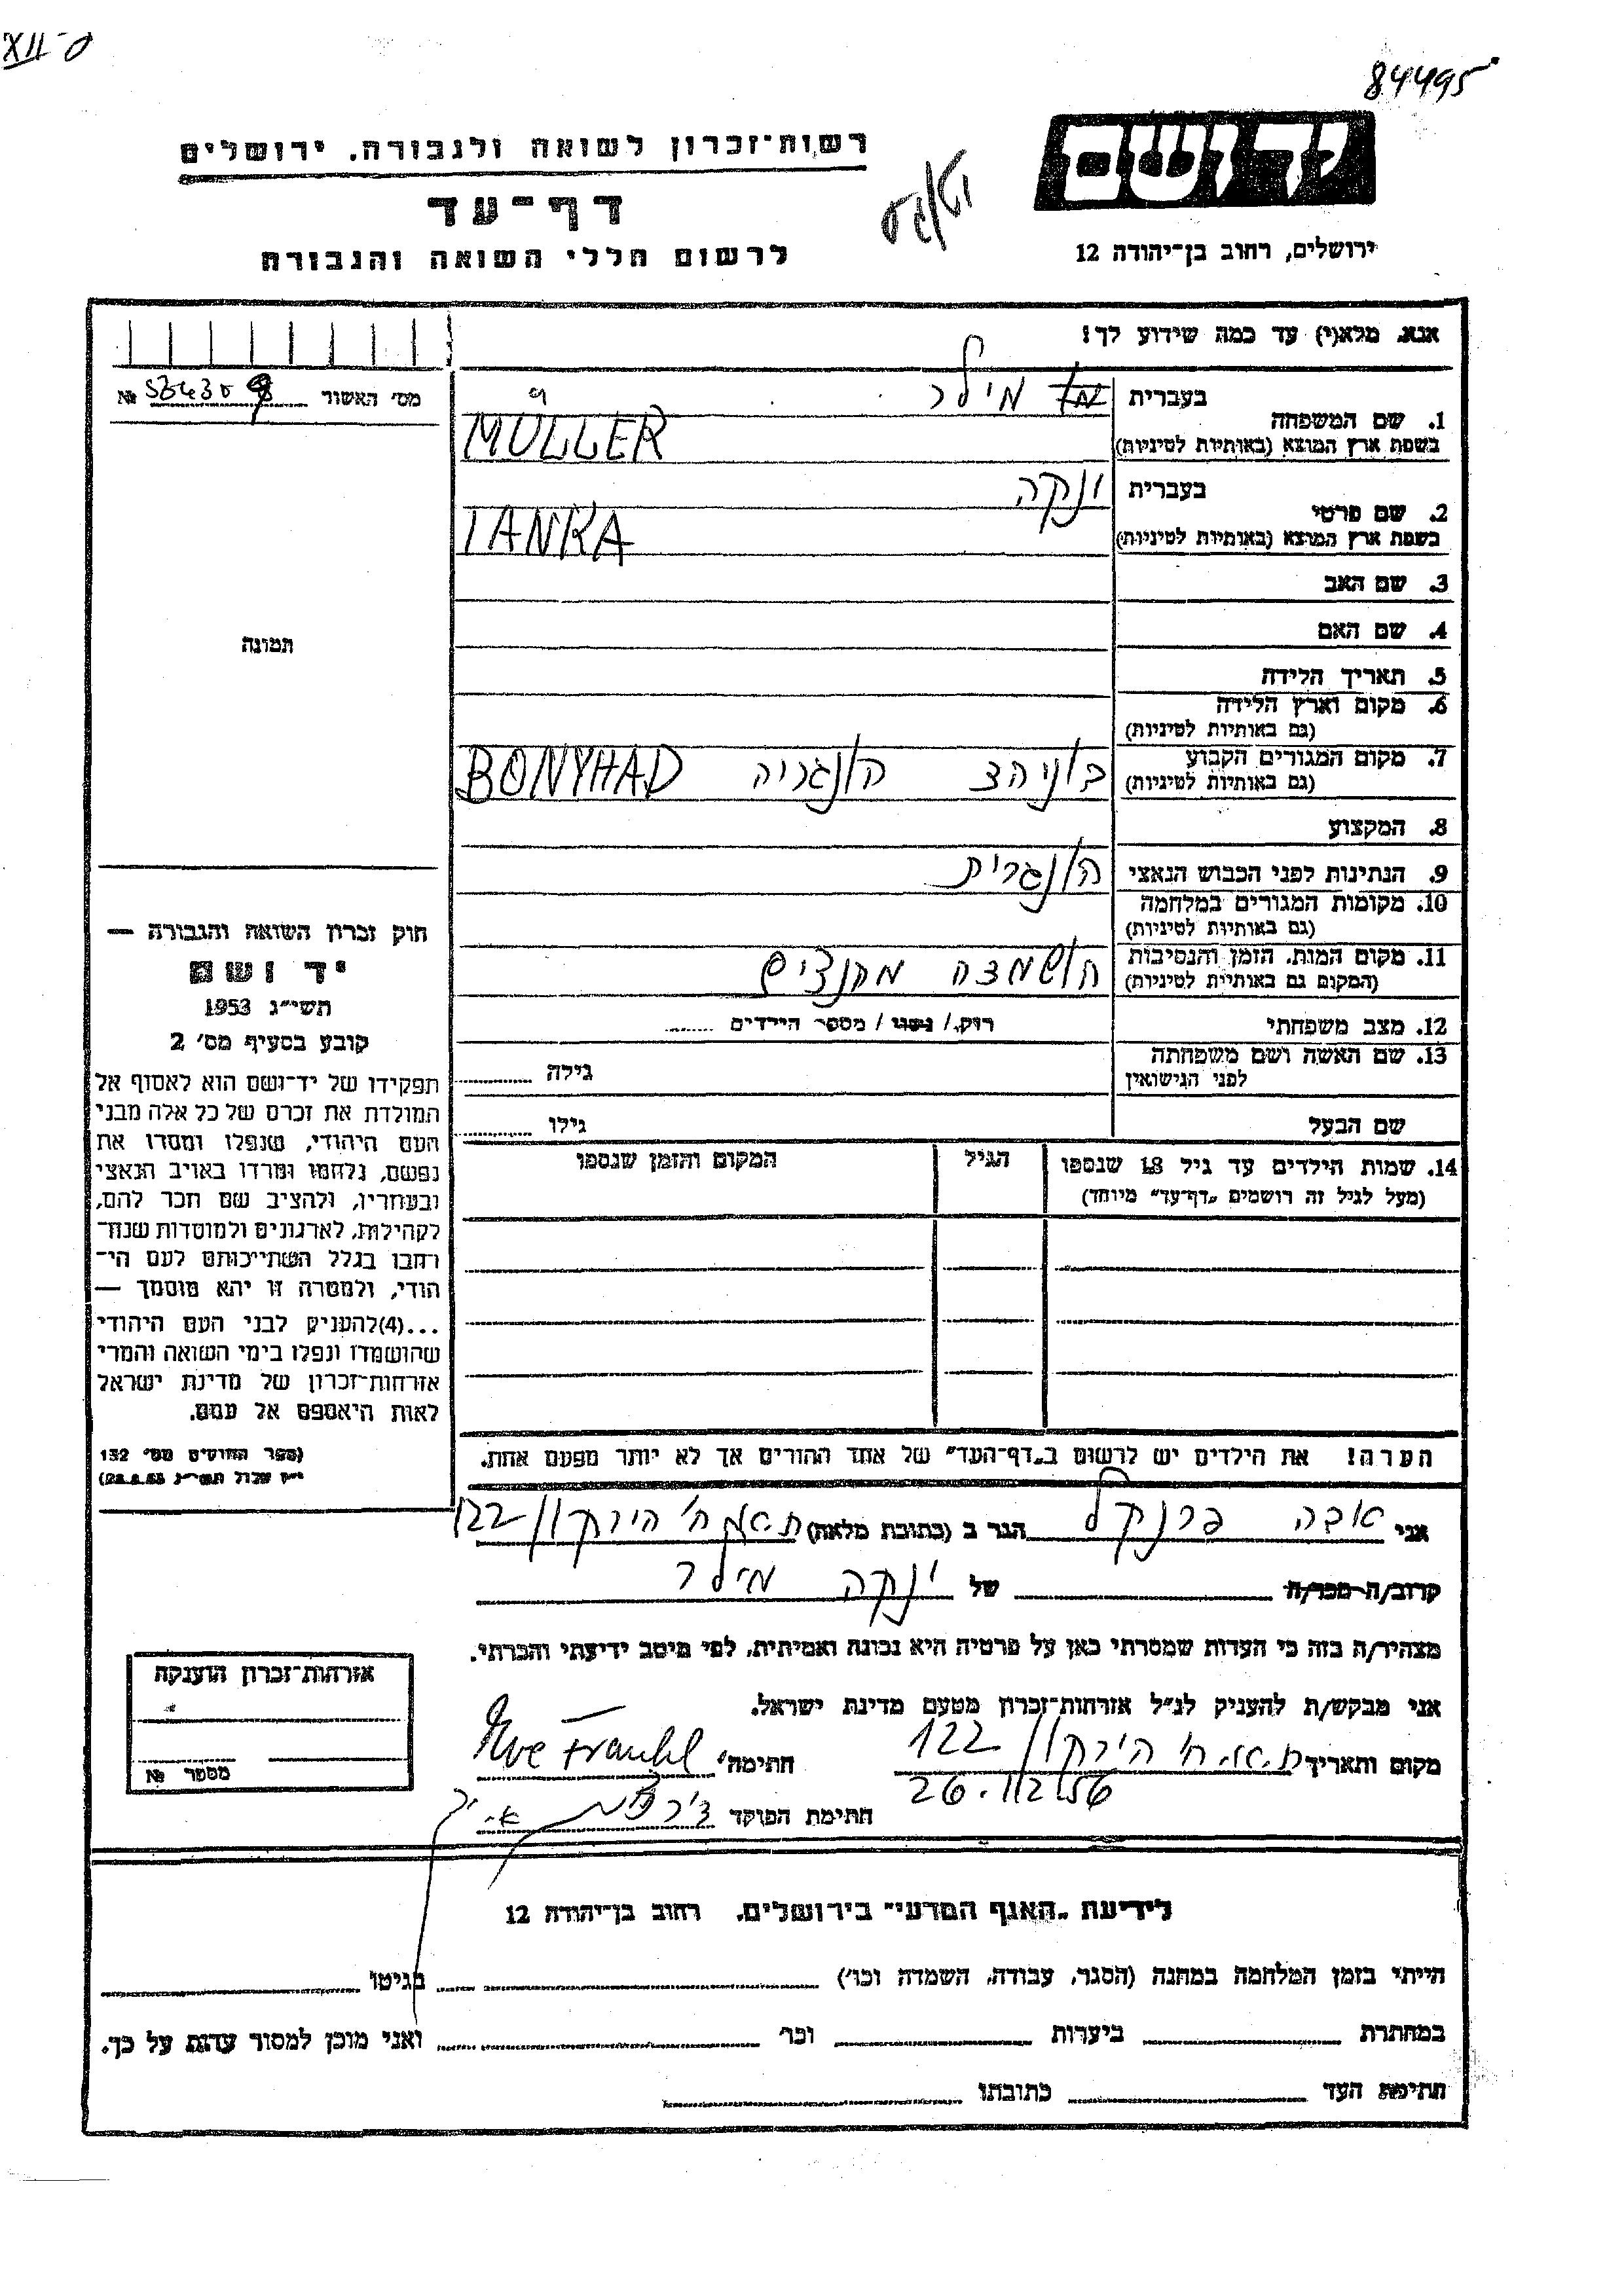 XII-מ
84495
יד ושם
רשות-זכרון לשואה ולגבורה, ירושלים
דף-עד
לרשום חללי השואה והגבורה
ירושלים, רחוב בן-יהודה 12
אנא, מלא(י) עד כמה שידוע לך!
מס' האשור №
1. שם המשפחה
בעברית מילר
בשפת ארץ המוצא (באותיות לטיניות) MULLER
2. שם פרטי
בעברית ינקה
בשפת ארץ המוצא (באותיות לטיניות) IANKA
3. שם האב
4. שם האם
תמונה
5. תאריך הלידה
6. מקום וארץ הלידה
(גם באותיות לטיניות)
7. מקום המגורים הקבוע
(גם באותיות לטיניות) בוניהד הונגריה BONYHAD
8. המקצוע
9. הנתינות לפני הכבוש הנאצי הונגרית
10. מקומות המגורים במלחמה
(גם באותיות לטיניות)
11. מקום המות, הזמן והנסיבות
(המקום גם באותיות לטיניות) הושמדה
12. מצב משפחתי רווק/ נשוי / מספר הילדים ......
13. שם האשה ושם משפחתה
לפני הנישואין גילה
שם הבעל גילו
14. שמות הילדים עד גיל 18 שנספו הגיל המקום והזמן שנספו
(מעל לגיל זה רושמים „דף-עד" מיוחד)
חוק זכרון השואה והגבורה —
יד ושם
תשי"ג 1953
קובע בסעיף מס' 2
תפקידו של יד-ושם הוא לאסוף אל
המולדת את זכרם של כל אלה מבני
העם היהודי, שנפלו ומסרו את
נפשם, נלחמו ומרדו באויב הנאצי
ובעוזריו, ולהציב שם וזכר להם,
לקהילות, לארגונים ולמוסדות שנח־
רבו בגלל השתייכותם לעם הי־
הודי, ולמטרה זו יהא מוסמך —
...(4)להעניק לבני העם היהודי
שהושמדו ונפלו בימי השואה והמרי
אזרחות-זכרון של מדינת ישראל
לאות היאספם אל עמם.
(ספר החוקים מס' 132
י"ז אלול תשי"ג 28.8.53)
הערה! את הילדים יש לרשום ב„דף-העד" של אחד ההורים אך לא יותר מפעם אחת.
אני אוה פרנקל הגר ב (כתובת מלאה) ת.א. רח' הירקון 122
קרוב/ה מכר/ה של ינקה מילר
מצהיר/ה בזה כי העדות שמסרתי כאן על פרטיה היא נכונה ואמיתית, לפי מיטב ידיעתי והכרתי.
אני מבקש/ת להעניק לנ"ל אזרחות-זכרון מטעם מדינת ישראל.
מקום ותאריך ת.א. רח' הירקון 122 חתימה Eve Frankl
26.12.56
חתימת הפוקד
אזרחות-זכרון הוענקה
מספר №
לידיעת „האגף המדעי" בירושלים, רחוב בן-יהודה 12
הייתי בזמן המלחמה במחנה (הסגר, עבודה, השמדה וכו') בגיטו
במחתרת ביערות וכו' ואני מוכן למסור עדות על כך.
חתימת העד כתובתו